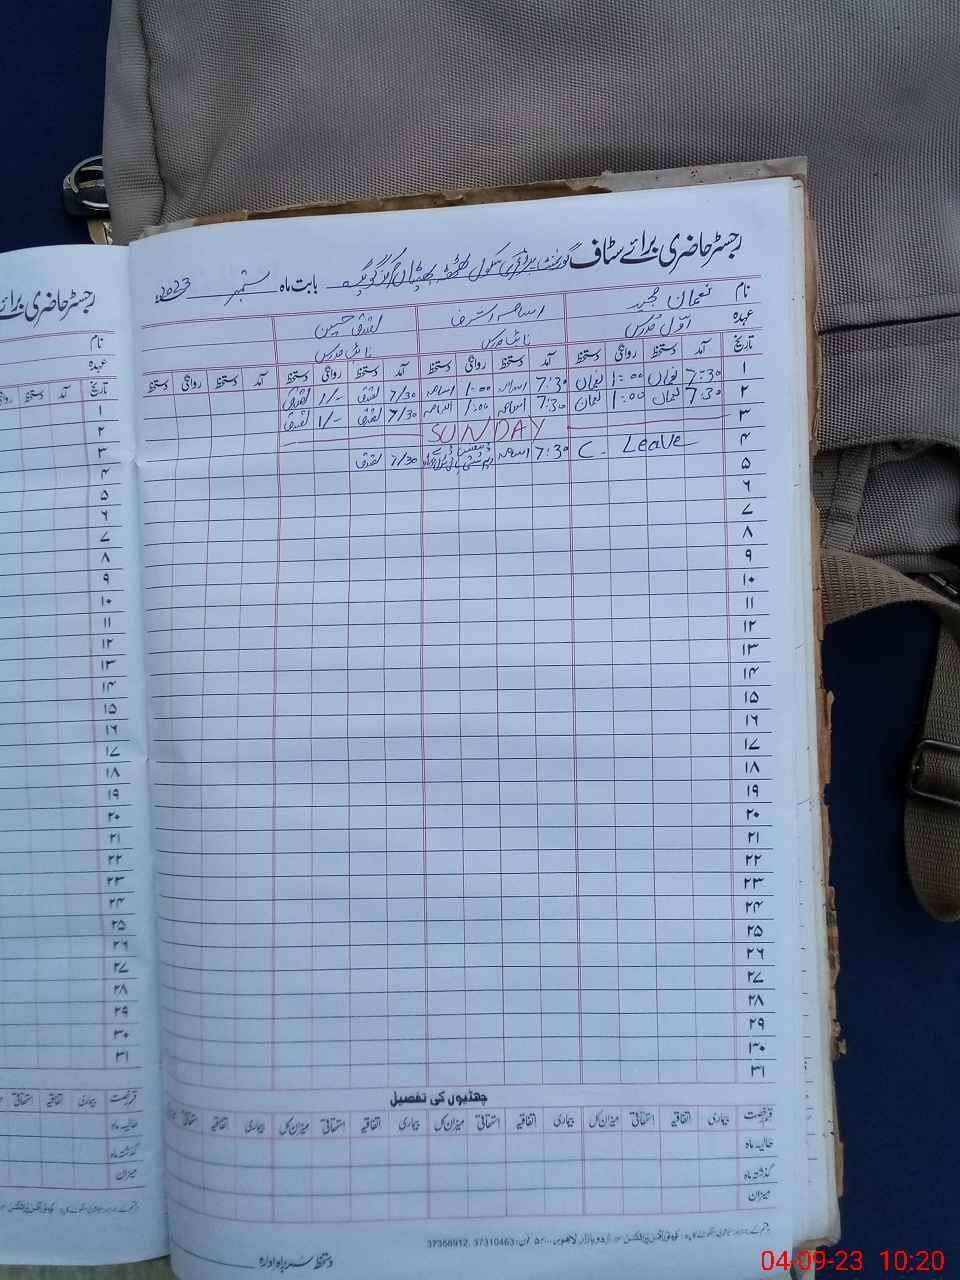 رجسٹر حاضری برائے سٹاف گورنمنٹ پرائمری سکول بابت ماہ ستمبر 2023ء
نام نعمان مجید اسامہ اشرف حسین
عہدہ اوّل مدرس نائب مدرس نائب مدرس
تاریخ آمد دستخط روانگی دستخط آمد دستخط روانگی دستخط آمد دستخط روانگی دستخط آمد دستخط روانگی دستخط
۱ 7:30 نعمان 1:00 نعمان 7:30 اسامہ 1:00 اسامہ 7/30 1/-
۲ 7:30 نعمان 1:00 نعمان 7:30 اسامہ 1:00 اسامہ 7/30 1/-
۳ SUNDAY
۴ C. Leave 7:30 اسامہ 7/30
۵
۶
۷
۸
۹
۱۰
۱۱
۱۲
۱۳
۱۴
۱۵
۱۶
۱۷
۱۸
۱۹
۲۰
۲۱
۲۲
۲۳
۲۴
۲۵
۲۶
۲۷
۲۸
۲۹
۳۰
۳۱
چھٹیوں کی تفصیل
قسم رخصت بیماری اتفاقیہ استحقاقی میزان کل بیماری اتفاقیہ استحقاقی میزان کل بیماری اتفاقیہ استحقاقی میزان کل بیماری اتفاقیہ استحقاقی
حالیہ ماہ
گذشتہ ماہ
میزان
اردو بازار لاہور فون: 37310463, 37358912
دستخط سربراہ ادارہ
رجسٹر حاضری برائے
نام
عہدہ
تاریخ آمد دستخط روانگی
۱
۲
۳
۴
۵
۶
۷
۸
۹
۱۰
۱۱
۱۲
۱۳
۱۴
۱۵
۱۶
۱۷
۱۸
۱۹
۲۰
۲۱
۲۲
۲۳
۲۴
۲۵
۲۶
۲۷
۲۸
۲۹
۳۰
۳۱
قسم رخصت بیماری اتفاقیہ استحقاقی
حالیہ ماہ
گذشتہ ماہ
میزان
04-09-23 10:20